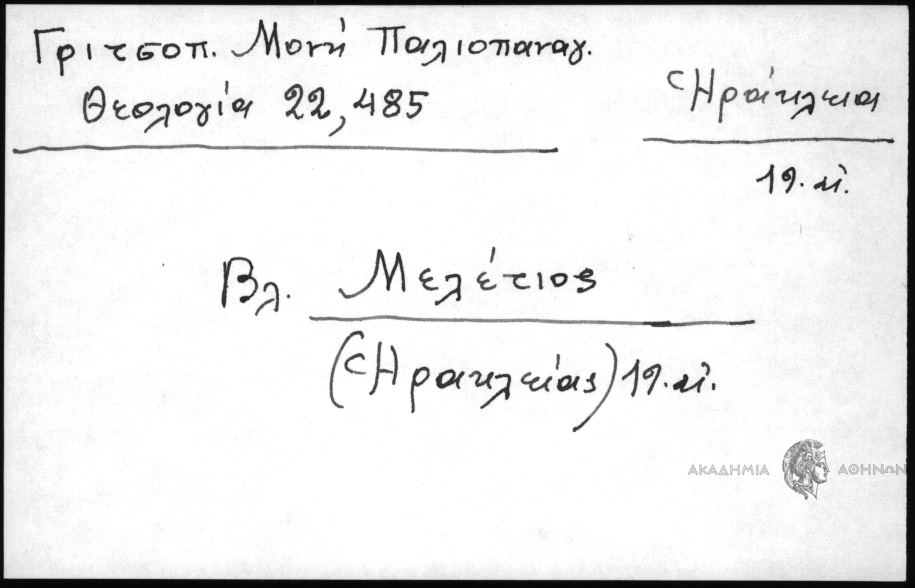 Γριτσοπ. Μονή Παλιοπαναγ.
Θεολογία 22, 485
Ἡράκλεια
19. αἰ.
Βλ. Μελέτιος
(Ἡρακλείας) 19. αἰ.
ΑΚΑΔΗΜΙΑ ΑΘΗΝΩΝ